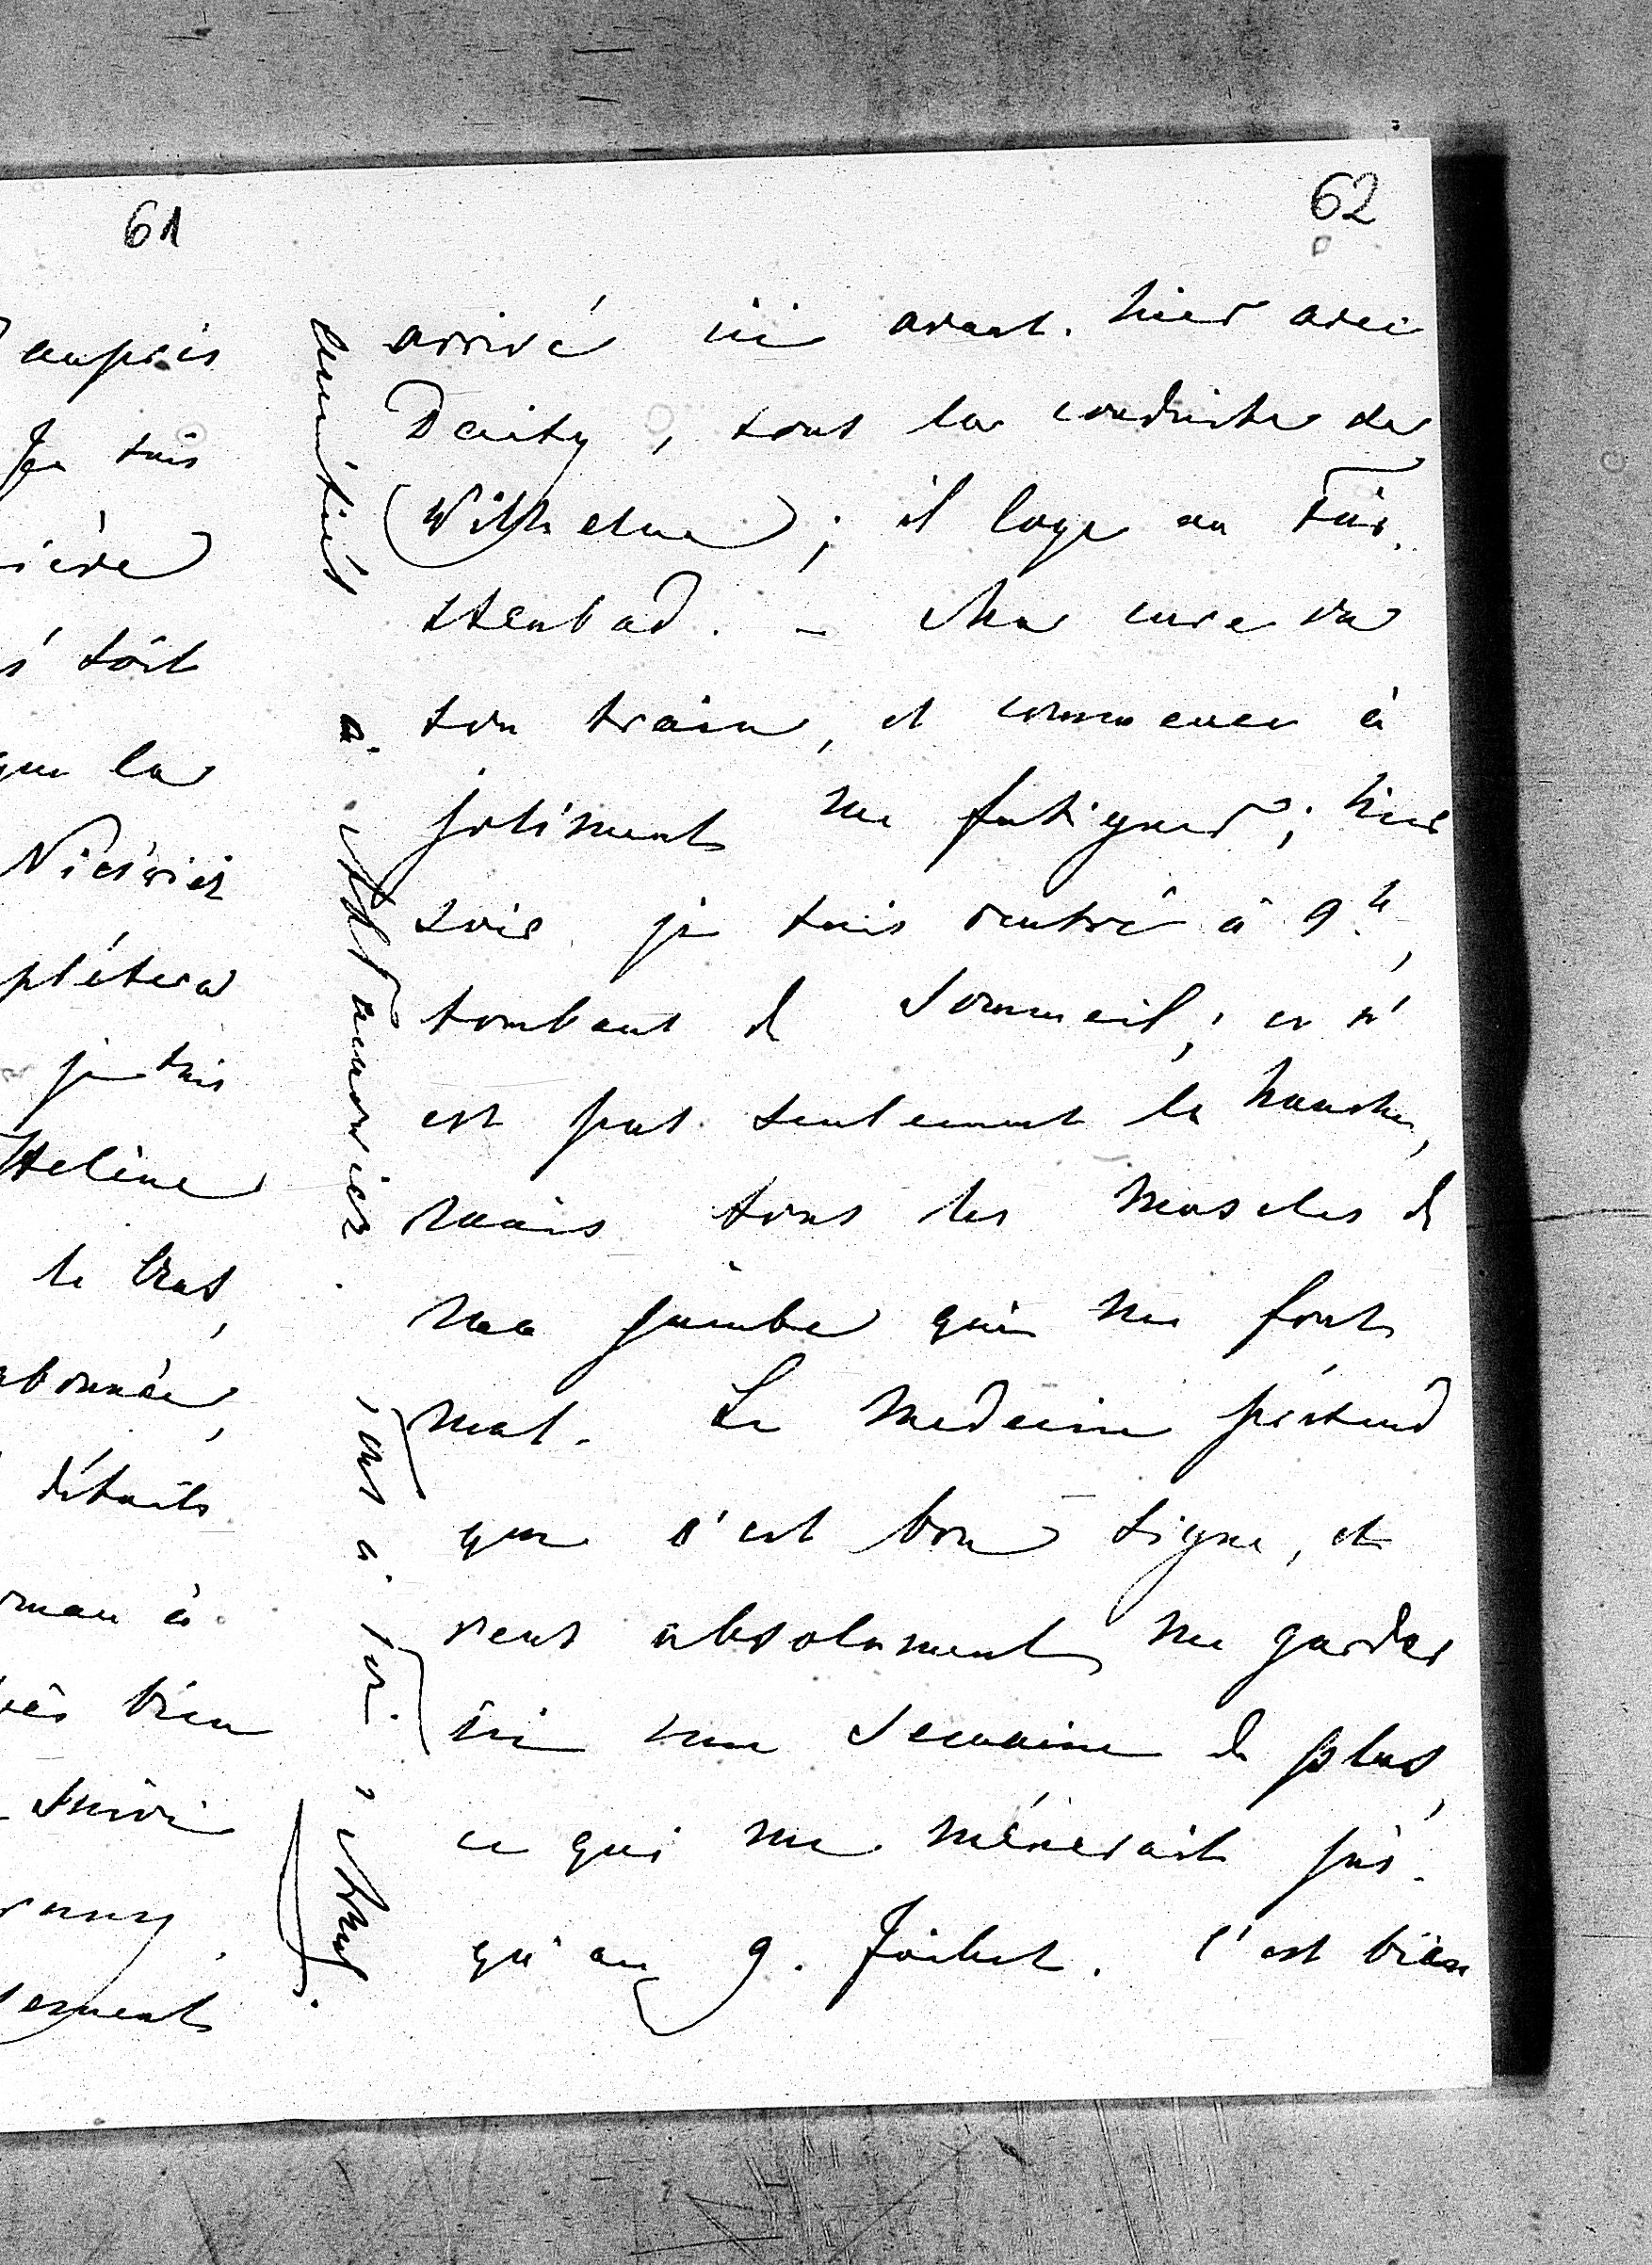 61
auprès
Je suis
ière
s' soit
que la
Nieświez
plétera
je suis
Helène
le bras,
abonnée,
détails
à
très bien
suivi
sement
62
arrivé ici avant-hier avec
Daisy, sous la conduite de
(Wilhelm); il loge au Für-
stenbad. - Ma cure va
son train, et commence à
joliment me fatiguer; hier
soir je suis rentré à 9h,
tombant de sommeil; ce n'
est pas seulement la hanche,
mais tous les muscles de
ma jambe qui me font
mal. Le médecin prétend
que c'est bon signe, et
veut absolument me garder
ici une semaine de plus,
ce qui me mènerait jus-
qu'au 9. Juillet. C'est bien
amitiés à